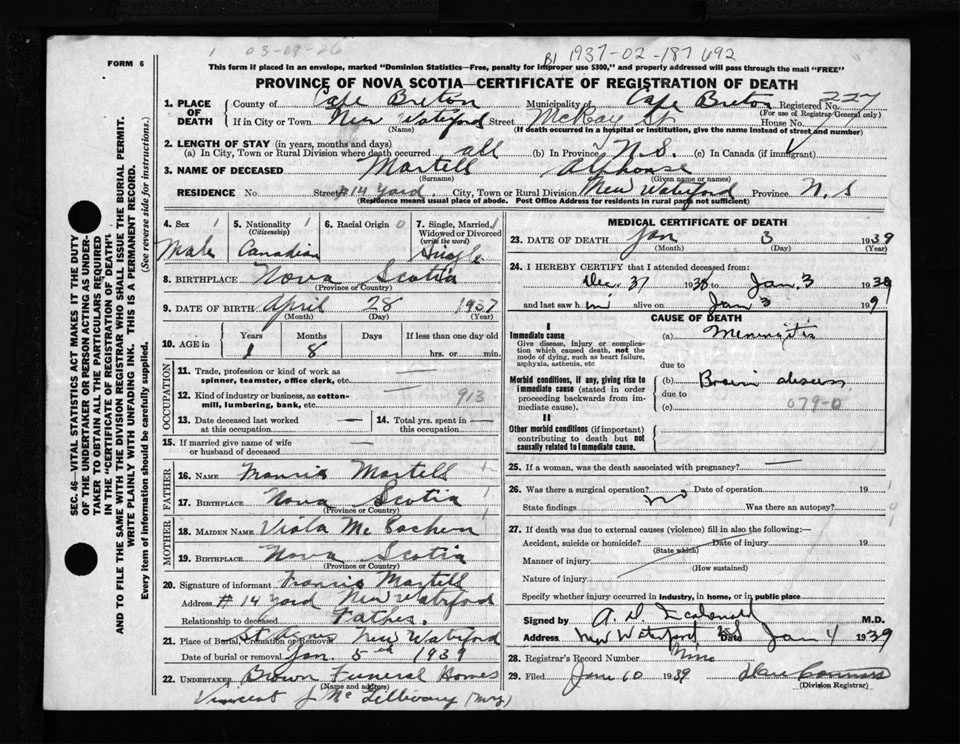 1 03-09-26
B1 1937-02-187692
FORM 6
This form if placed in an envelope, marked "Dominion Statistics—Free, penalty for improper use $300," and properly addressed will pass through the mail "FREE"
PROVINCE OF NOVA SCOTIA—CERTIFICATE OF REGISTRATION OF DEATH
1. PLACE OF DEATH
County of Cape Breton Municipality of Cape Breton Registered No. 227
(For use of Registrar General only)
If in City or Town New Waterford Street McKay St House No.
(Name) (If death occurred in a hospital or institution, give the name instead of street and number)
2. LENGTH OF STAY (in years, months and days)
(a) In City, Town or Rural Division where death occurred all (b) In Province N.S. (c) In Canada (if immigrant)
3. NAME OF DECEASED Martell Alphonse
(Surname) (Given name or names)
RESIDENCE No Street #14 Yard City, Town or Rural Division New Waterford Province N.S
(Residence means usual place of abode. Post Office Address for residents in rural parts not sufficient)
4. Sex Male
5. Nationality (Citizenship) Canadian
6. Racial Origin 0
7. Single, Married, Widowed or Divorced (write the word) Single
8. BIRTHPLACE Nova Scotia
(Province or Country)
9. DATE OF BIRTH April 28 1937
(Month) (Day) (Year)
10. AGE in
Years Months Days If less than one day old
1 8 hrs. or min.
OCCUPATION
11. Trade, profession or kind of work as spinner, teamster, office clerk, etc. —
12. Kind of industry or business, as cotton-mill, lumbering, bank, etc. — 913
13. Date deceased last worked at this occupation —
14. Total yrs. spent in this occupation —
15. If married give name of wife or husband of deceased —
FATHER
16. NAME Francis Martell
17. BIRTHPLACE Nova Scotia
(Province or Country)
MOTHER
18. MAIDEN NAME Viola
19. BIRTHPLACE Nova Scotia
(Province or Country)
20. Signature of informant Francis Martell
Address #14 Yard New Waterford
Relationship to deceased Father.
21. Place of Burial, Cremation or Removal St Agnes New Waterford
Date of burial or removal Jan. 5th 1939
22. UNDERTAKER Brown Funeral Homes
(Name and address)
Vincent J
MEDICAL CERTIFICATE OF DEATH
23. DATE OF DEATH Jan 3 1939
(Month) (Day) (Year)
24. I HEREBY CERTIFY that I attended deceased from:
Dec. 37 1938 to Jan, 3 1939
and last saw him alive on Jan 3 19 9
CAUSE OF DEATH
I
Immediate cause
Give disease, injury or complication which caused death, not the mode of dying, such as heart failure, asphyxia, asthenia, etc
(a) Meningitis
due to
Morbid conditions, if any, giving rise to immediate cause (stated in order proceeding backwards from immediate cause).
(b) Brain
due to
(c) 079-0
II
Other morbid conditions (if important) contributing to death but not causally related to immediate cause.
25. If a woman, was the death associated with pregnancy? —
26. Was there a surgical operation? no Date of operation 19
State findings Was there an autopsy?
27. If death was due to external causes (violence) fill in also the following:—
Accident, suicide or homicide? Date of injury 19
(State which)
Manner of injury
(How sustained)
Nature of injury
Specify whether injury occurred in industry, in home, or in public place
Signed by M.D.
Address New Waterford Date Jan 4 1939
28. Registrar's Record Number Nine
29. Filed 1939
(Division Registrar)
SEC. 46—VITAL STATISTICS ACT MAKES IT THE DUTY
OF THE UNDERTAKER OR PERSON ACTING AS UNDER-
TAKER TO OBTAIN ALL THE PARTICULARS REQUIRED
IN THE "CERTIFICATE OF REGISTRATION OF DEATH"
AND TO FILE THE SAME WITH THE DIVISION REGISTRAR WHO SHALL ISSUE THE BURIAL PERMIT.
WRITE PLAINLY WITH UNFADING INK. THIS IS A PERMANENT RECORD.
Every item of information should be carefully supplied. (See reverse side for instructions.)